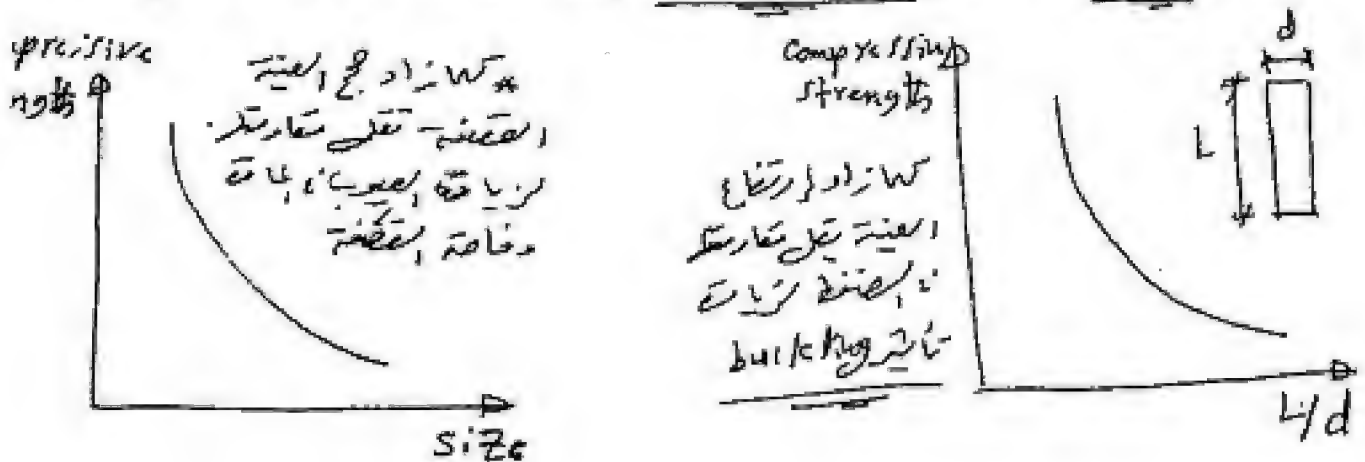 presisive
ngth
* كلما زاد حجم العينة
تقل مقاومتها
لزيادة العيوب في المادة
وخاصة
size
compressive
strength
كلما زاد ارتفاع
العينة تقل مقاومتها
في الضغط لزيادة
تأثير buckling
d
L
L/d